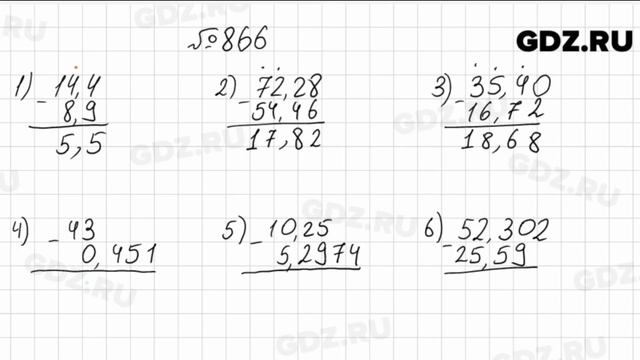 №866
GDZ.RU
1) - 14,4
8,9
5,5
2) - 72,28
54,46
17,82
3) - 35,40
16,72
18,68
4) - 43
0,451
5) - 10,25
5,2974
6) - 52,302
25,59
GDZ.RU
GDZ.RU
GDZ.RU
GDZ.RU
GDZ.RU
GDZ.RU